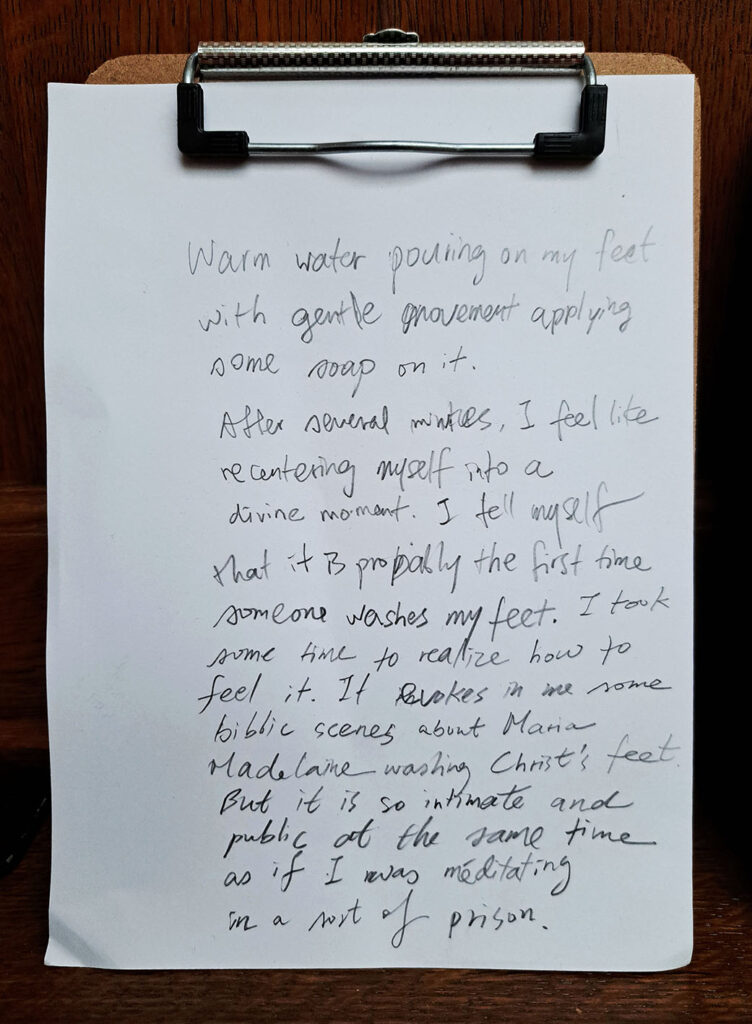 Warm water pouring on my feet
with gentle movement applying
some soap on it.
After several minutes, I feel like
recentering myself into a
divine moment. I tell myself
that it is probably the first time
someone washes my feet. I took
some time to realize how to
feel it. It evokes in me some
biblic scenes about Maria
Madelaine washing Christ's feet.
But it is so intimate and
public at the same time
as if I was méditating
in a sort of prison.